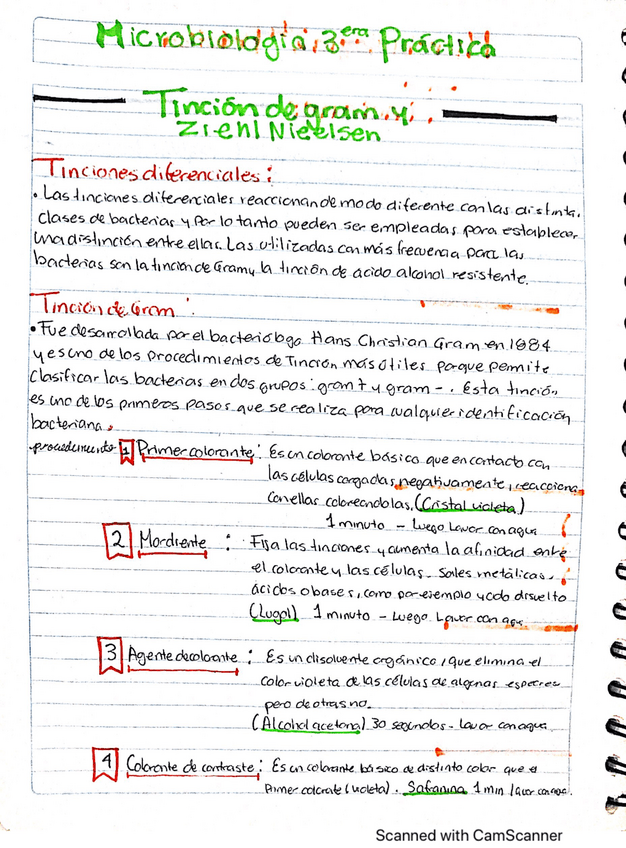 Microbiología 3era Práctica
Tinción de gram y
Ziehl Nieelsen
Tinciones diferenciales:
• Las tinciones diferenciales reaccionan de modo diferente con las distintas
clases de bacterias y por lo tanto pueden ser empleadas para establecer
una distinción entre ellas. Las utilizadas con más frecuencia para las
bacterias son la tinción de Gram y la tinción de acido alcohol resistente.
Tinción de Gram
• Fue desarrollada por el bacteriólogo Hans Christian Gram en 1984
y es uno de los procedimientos de Tinción más útiles porque permite
clasificar las bacterias en dos grupos: gram + y gram -. Esta tinción
es uno de los primeros pasos que se realiza para cualquier identificación
bacteriana.
procedimiento 1 Primer colorante: Es un colorante básico que en contacto con
las células cargadas negativamente, reacciona
con ellas coloreandolas. (Cristal violeta)
1 minuto - Luego Lavar con agua
2 Mordiente: Fija las tinciones y aumenta la afinidad entre
el colorante y las células. Sales metálicas,
ácidos o bases, como por ejemplo yodo disuelto
(Lugol) 1 minuto - Luego Lavar con agua
3 Agente decolorante: Es un disolvente orgánico, que elimina el
color violeta de las células de algunas especies
pero de otras no.
(Alcohol acetona) 30 segundos - Lavar con agua
4 Colorante de contraste: Es un colorante básico de distinto color que el
Primer colorante (violeta). Safranina 1 min lavar con agua.
Scanned with CamScanner